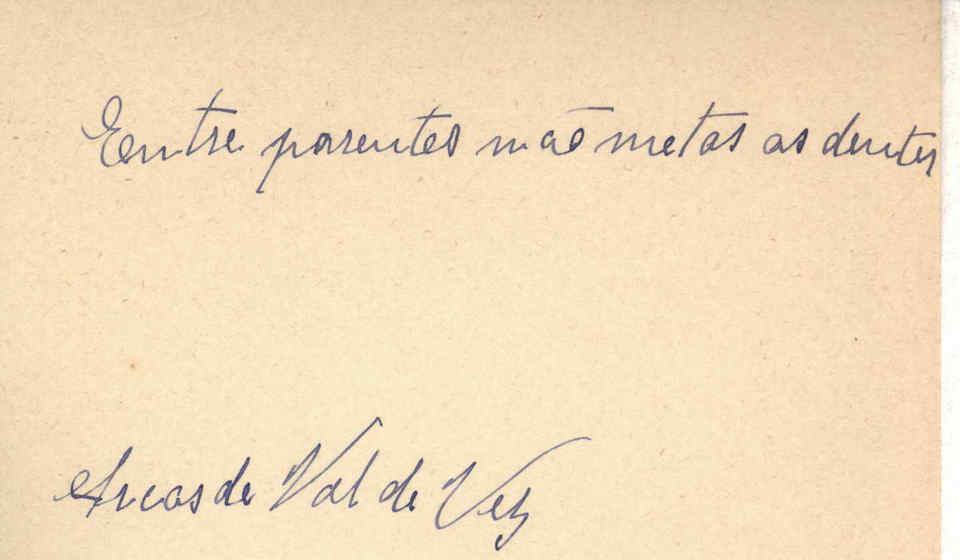 Entre parentes não metas os dentes
Arcos de Val de Vez